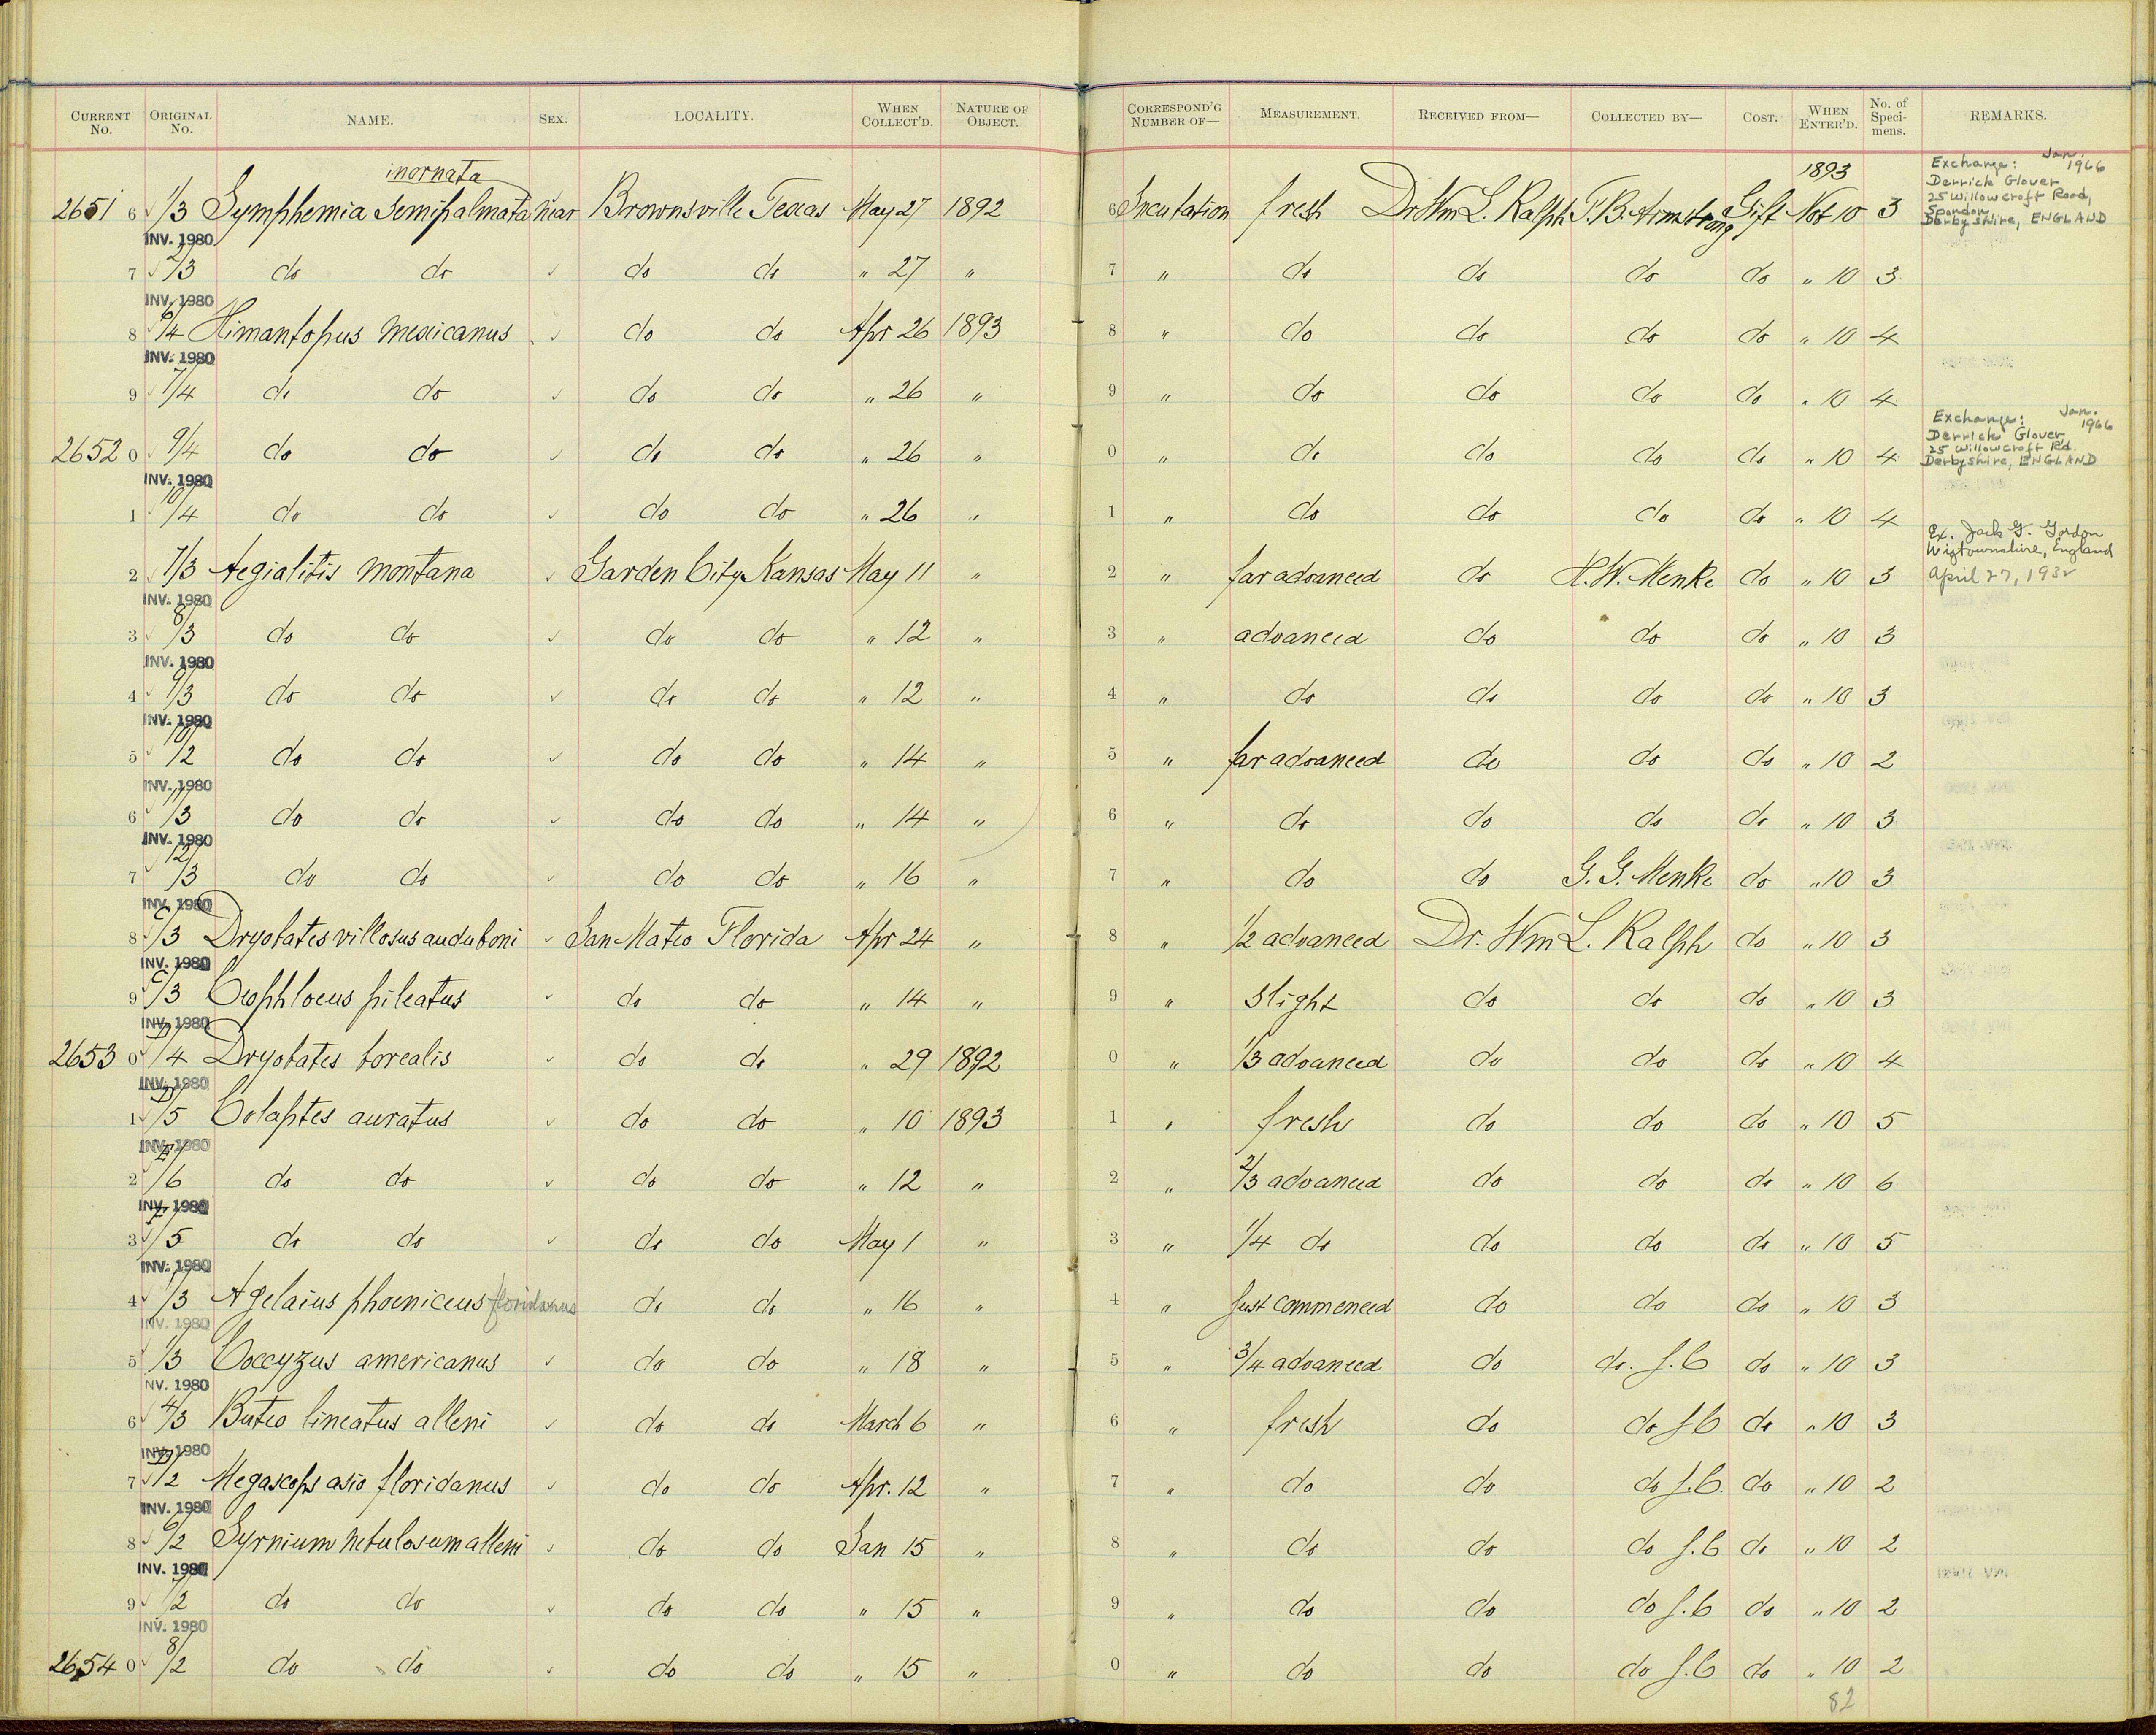 CURRENT No. ORIGINAL No. NAME. SEX. LOCALITY. WHEN COLLECT'D. NATURE OF OBJECT. CORRESPOND'G NUMBER OF— MEASUREMENT. RECEIVED FROM— COLLECTED BY— COST. WHEN ENTER'D. No. of Speci- mens. REMARKS.
inornata 1893 Exchange: Jan. 1966
Derrick Glover
25 Willowcroft Road,
Spondon
Derbyshire, ENGLAND
2651 6 1/3 Symphemia semipalmata near Brownsville Texas May 27 1892 6 Incubation fresh Dr Wm L. Ralph F. B. Armstrong Gift Nov 10 3
INV. 1980
7 2/3 do do do do " 27 " 7 " do do do do " 10 3
INV. 1980
8 6/4 Himantopus mexicanus do do Apr 26 1893 8 " do do do do " 10 4
INV. 1980
9 7/4 do do do do " 26 " 9 " do do do do " 10 4
Exchange: Jan. 1966
Derrick Glover
25 Willowcroft Rd.
Derbyshire, ENGLAND
2652 0 9/4 do do do do " 26 " 0 " do do do do " 10 4
INV. 1980
1 10/4 do do do do " 26 " 1 " do do do do " 10 4
Ex. Jack G. Gordon
Wigtownshire, England
April 27, 1932
2 7/3 Aegialitis montana Garden City Kansas May 11 " 2 " far advanced do H. W. Menke do " 10 3
INV. 1980
3 8/3 do do do do " 12 " 3 " advanced do do do " 10 3
INV. 1980
4 9/3 do do do do " 12 " 4 " do do do do " 10 3
INV. 1980
5 10/2 do do do do " 14 " 5 " far advanced do do do " 10 2
INV. 1980
6 11/3 do do do do " 14 " 6 " do do do do " 10 3
INV. 1980
7 12/3 do do do do " 16 " 7 " do do G. G. Menke do " 10 3
INV. 1980
8 C/3 Dryobates villosus auduboni San Mateo Florida Apr 24 " 8 " 1/2 advanced Dr. Wm L. Ralph do " 10 3
INV. 1980
9 C/3 Ceophloeus pileatus do do " 14 " 9 " slight do do do " 10 3
INV. 1980
2653 0 D/4 Dryobates borealis do do " 29 1892 0 " 1/3 advanced do do do " 10 4
INV. 1980
1 D/5 Colaptes auratus do do " 10 1893 1 " fresh do do do " 10 5
INV. 1980
2 E/6 do do do do " 12 " 2 " 2/3 advanced do do do " 10 6
INV. 1980
3 F/5 do do do do May 1 " 3 " 1/4 do do do do " 10 5
INV. 1980
4 1/3 Agelaius phoeniceus floridanus do do " 16 " 4 " Just commenced do do do " 10 3
INV. 1980
5 1/3 Coccyzus americanus do do " 18 " 5 " 3/4 advanced do do. J.C do " 10 3
NV. 1980
6 4/3 Buteo lineatus alleni do do March 6 " 6 " fresh do do J C do " 10 3
INV. 1980
7 D/2 Megascops asio floridanus do do Apr. 12 " 7 " do do do J.C. do " 10 2
INV. 1980
8 6/2 Syrnium nebulosum alleni do do Jan 15 " 8 " do do do J.C do " 10 2
INV. 1980
9 7/2 do do do do " 15 " 9 " do do do J.C do " 10 2
INV. 1980
2654 0 8/2 do do do do " 15 " 0 " do do do J.C do " 10 2
82